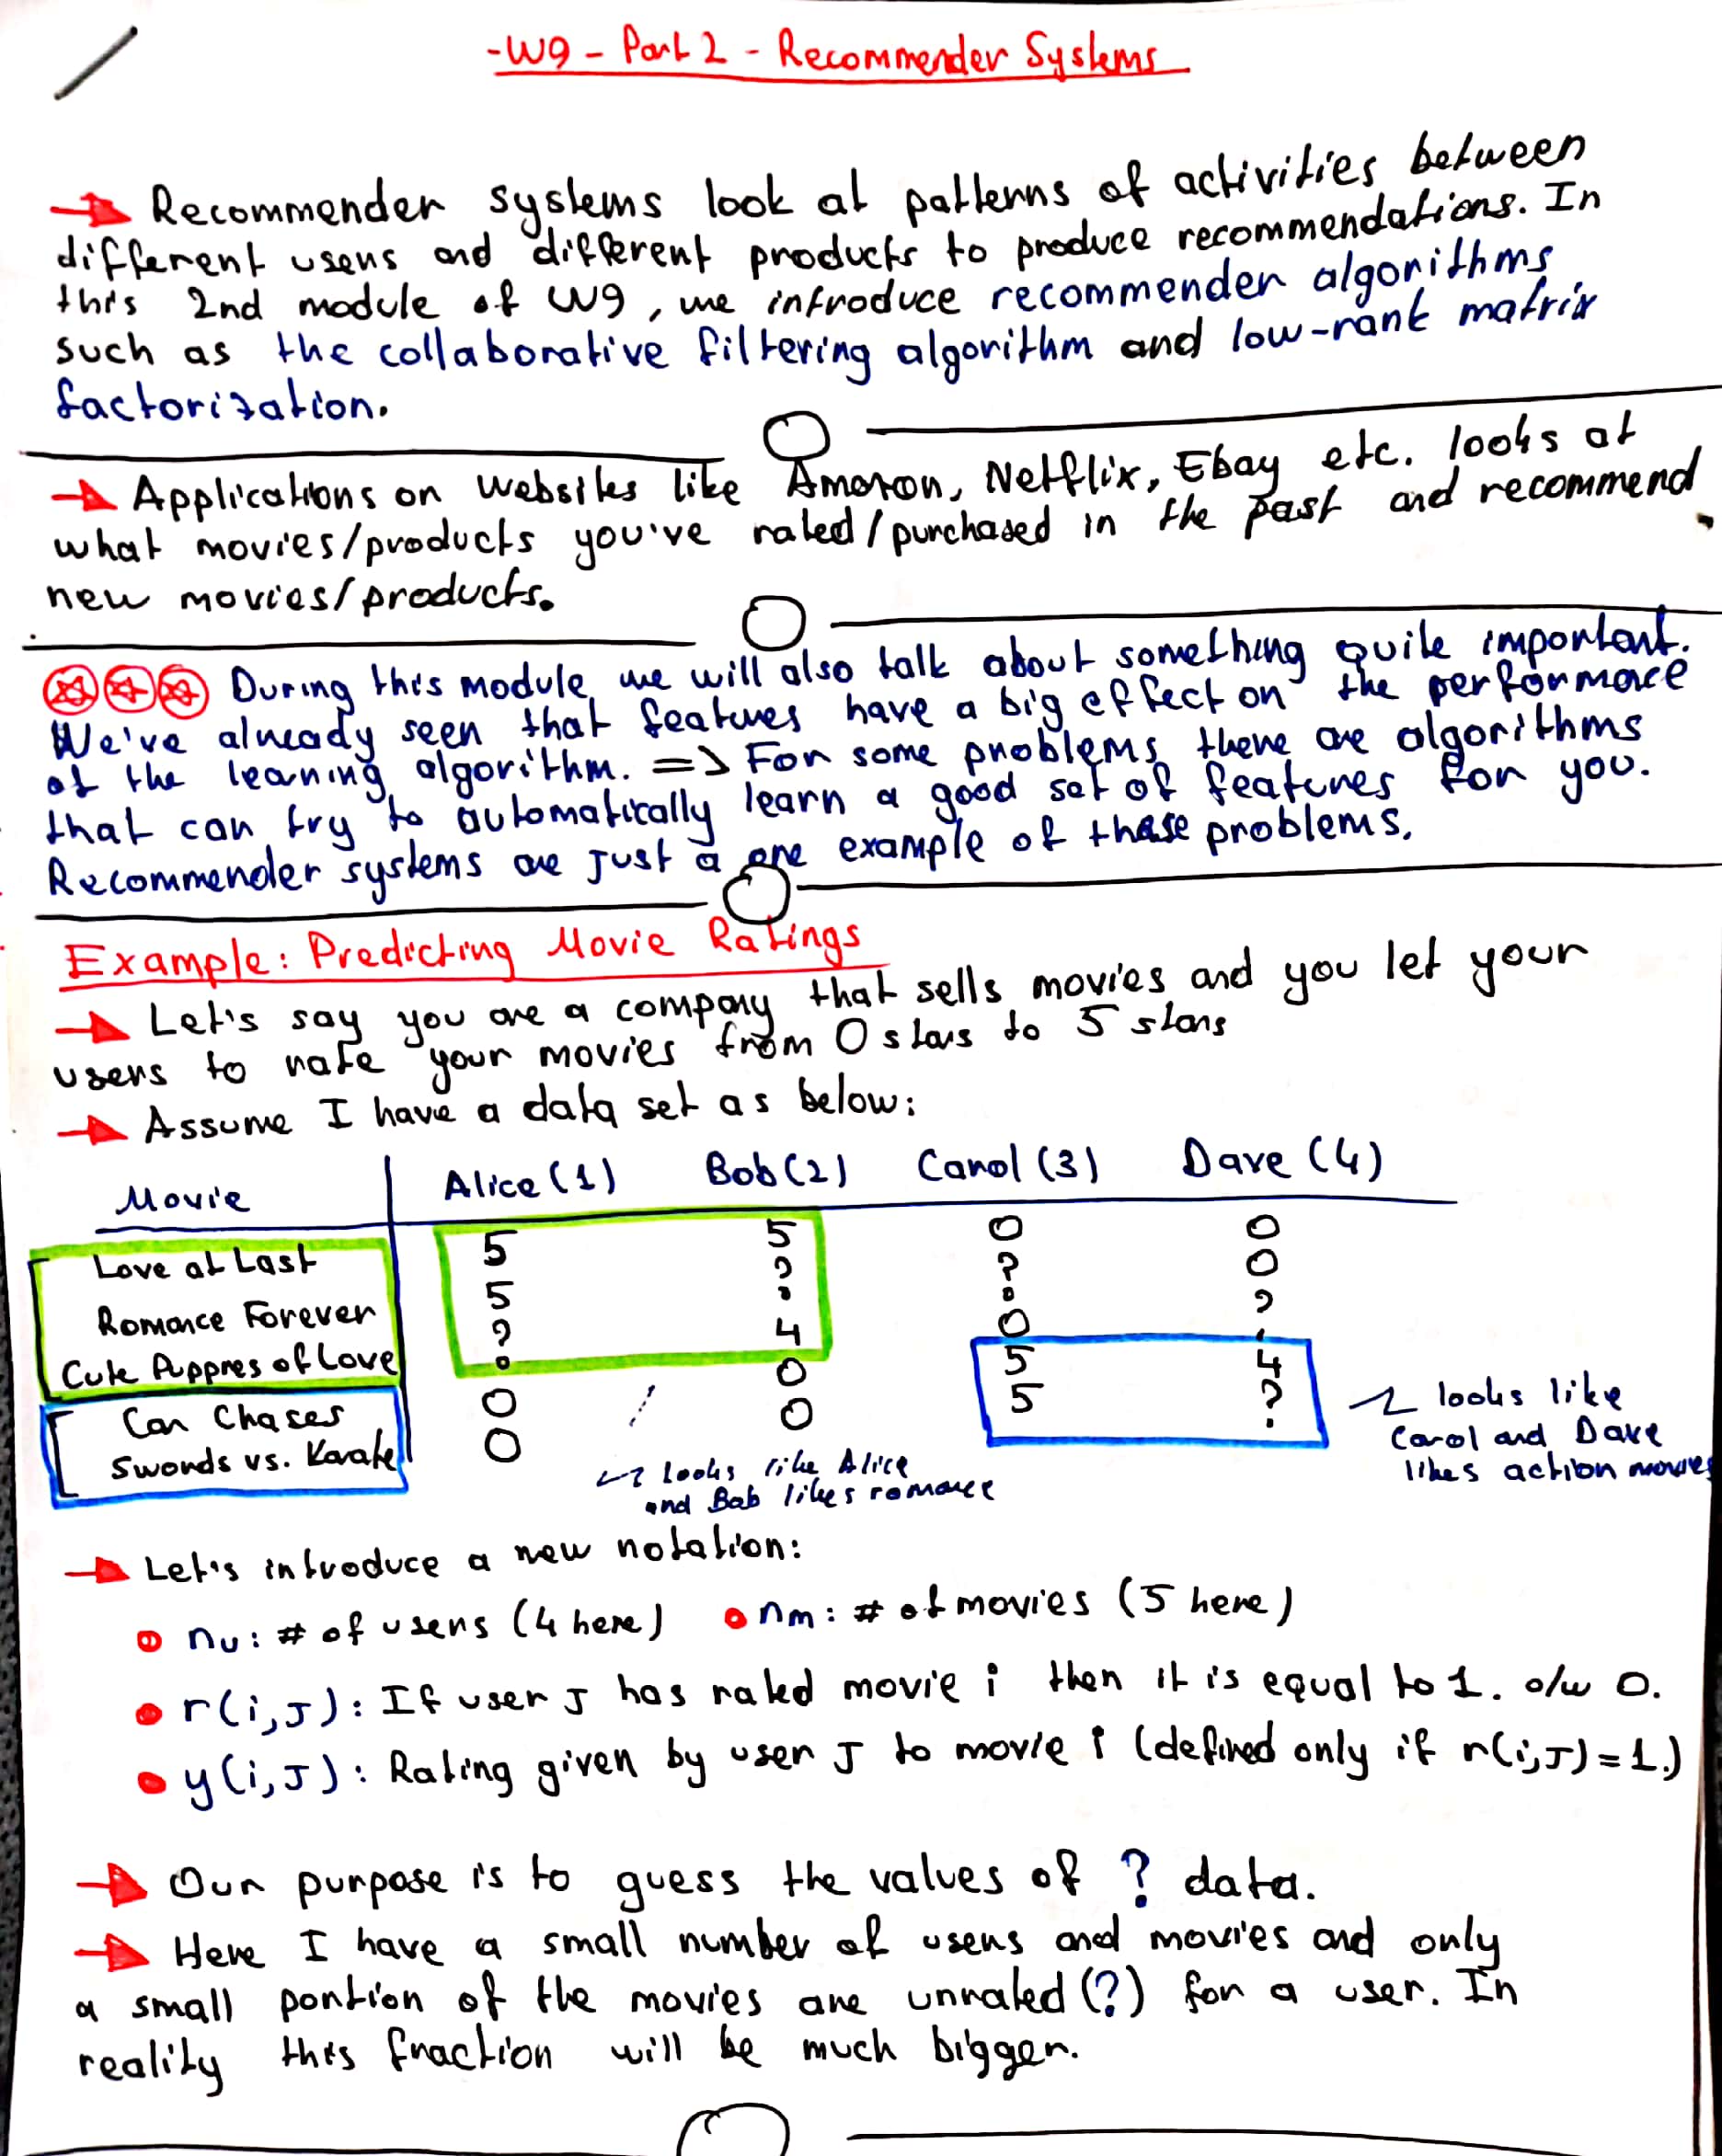 -W9 - Part 2 - Recommender Systems
Recommender systems look at patterns of activities between
different users and different products to produce recommendations. In
this 2nd module of W9, we introduce recommender algorithms
such as the collaborative filtering algorithm and low-rank matrix
factorization.
Applications on websites like Amazon, Netflix, Ebay etc. looks at
what movies/products you've rated/purchased in the past and recommend
new movies/products.
During this module we will also talk about something quite important.
We've already seen that features have a big effect on the performace
of the learning algorithm. => For some problems there are algorithms
that can try to automatically learn a good set of features for you.
Recommender systems are just a one example of these problems.
Example: Predicting Movie Ratings
Let's say you are a company that sells movies and you let your
users to rate your movies from 0 stars to 5 stars
Assume I have a data set as below:
Movie Alice (1) Bob (2) Carol (3) Dave (4)
Love at Last 5 5 0 0
Romance Forever 5 ? ? 0
Cute Puppies of Love ? 4 0 ?
Car Chases 0 0 5 4
Swords vs. Karate 0 0 5 ?
looks like Alice
and Bob likes romance
looks like
Carol and Dave
likes action movies
Let's introduce a new notation:
nu: # of users (4 here) nm: # of movies (5 here)
r(i,J): If user J has rated movie i then it is equal to 1. o/w 0.
y(i,J): Rating given by user J to movie i (defined only if r(i,J)=1.)
Our purpose is to guess the values of ? data.
Here I have a small number of users and movies and only
a small portion of the movies are unrated (?) for a user. In
reality this fraction will be much bigger.